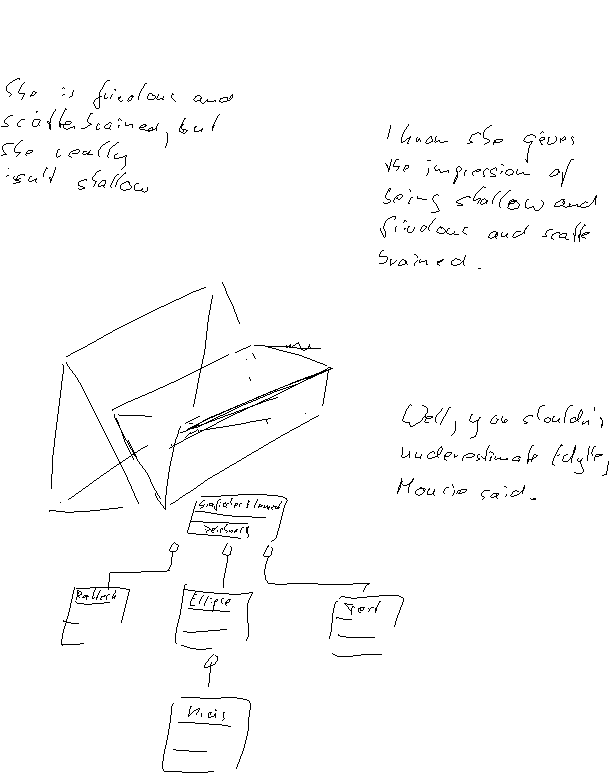 She is frivolous and
scatterbrained, but
she really
isn't shallow
I know she gives
the impression of
being shallow and
frivolous and scatter
brained.
Well, you shouldn't
underestimate Edythe,
Mourie said.
Grafisches Element
zeichnen()
Rechteck
Ellipse
Text
Kreis